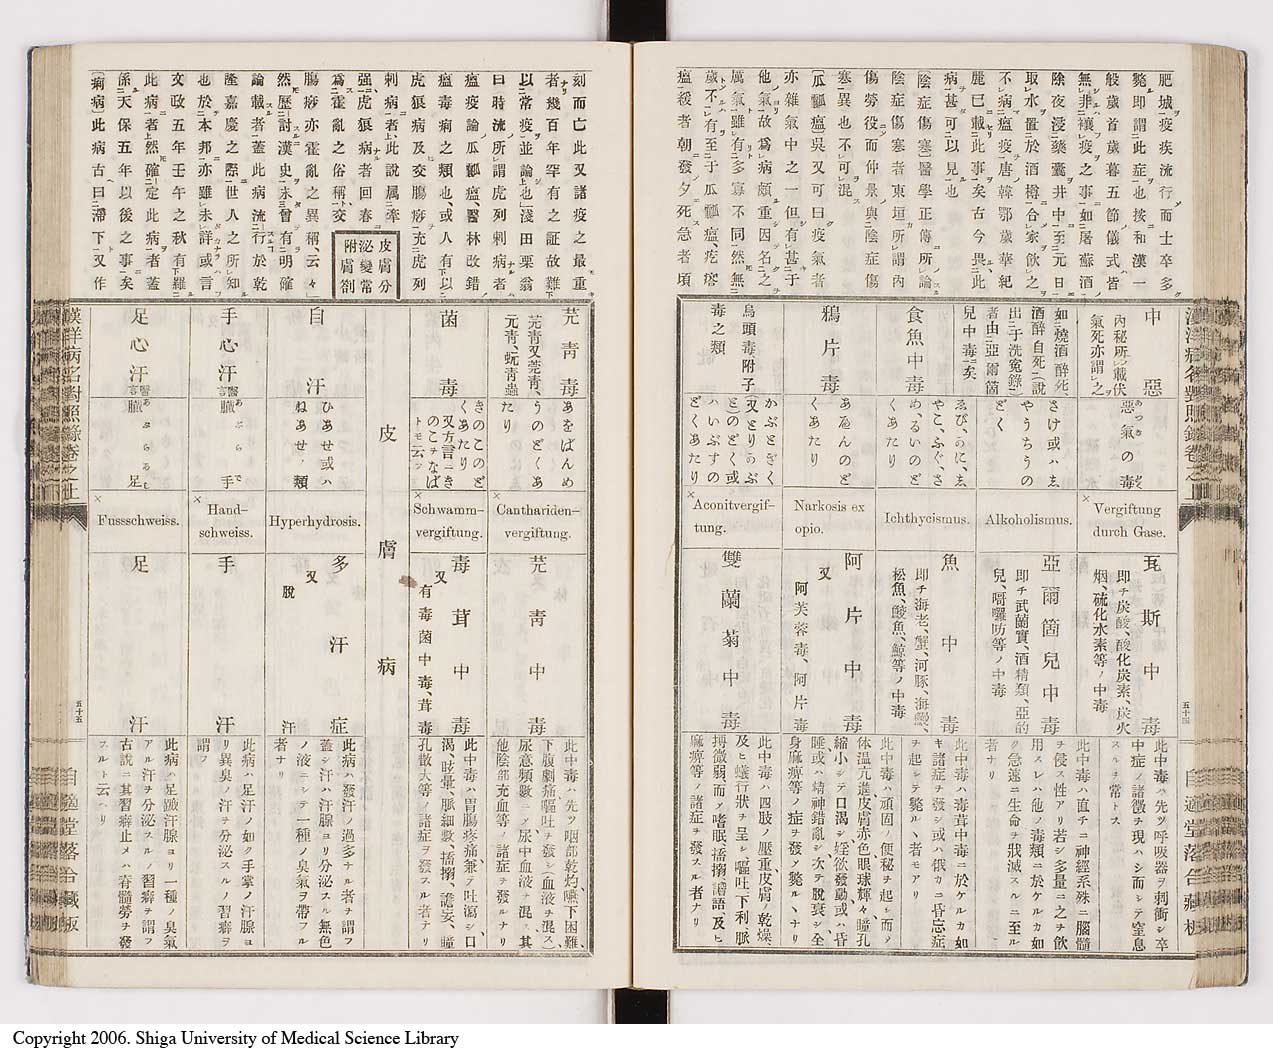 肥城疫疾流行而士卒多
斃即謂此症也按和漢一
般歲首歲暮五節儀式皆
無非禳疫之事如屠蘇酒
除夜浸藥囊井中至元日
取水置於酒樽合家飲之
不病瘟疫唐韓鄂歲華紀
麗已載此事矣古今畏此
病甚可以見也
〔陰症傷寒〕醫學正傳所論
陰症傷寒者東垣所謂內
傷勞役而仲景與陰症傷
寒異也不可混
〔瓜瓤瘟〕吳又可曰疫氣者
亦雜氣中之一但有甚于
他氣故爲病頗重因名之
厲氣雖有多寡不同然無
歲不有至于瓜瓤瘟、疙瘩
瘟緩者朝發夕死急者頃
中惡
內秘所載伏
氣死亦謂之
惡氣の毒
Vergiftung
durch Gase.
瓦斯中毒
即チ炭酸、酸化炭素、炭火
烟、硫化水素等ノ中毒
此中毒ハ先ツ呼吸器ヲ刺衝シ卒
中症ノ諸徵ヲ現ハシ而シテ窒息
スルヲ常トス
如燒酒醉死
酒醉自死說
出于洗寃錄
者由亞爾箇
兒中毒矣
さけ或ハゑ
やうちうの
どく
Alkoholismus.
亞爾箇兒中毒
即チ武蘭實、酒精類、亞的
兒、嗝囉叻等ノ中毒
此中毒ハ直チニ神經系殊ニ腦髓
ヲ侵ス性アリ若シ多量ニ之ヲ飲
用スレハ他ノ毒類ニ於ケルカ如
ク急速ニ生命ヲ戕滅スルニ至ル
者ナリ
食魚中毒
ゑび、かに、ゑ
やこ、ふぐ、さ
め、るいのど
くあたり
Ichthycismus.
魚中毒
即チ海老、蟹、河豚、海鰻、
松魚、酸魚、鯨等ノ中毒
此中毒ハ毒茸中毒ニ於ケルカ如
キ諸症ヲ發シ或ハ俄カニ昏忘症
ヲ起シテ斃ルヽ者モアリ
鴉片毒
あへんのど
くあたり
Narkosis ex
opio.
阿片中毒
又 阿芙蓉毒、阿片毒
此中毒ハ頑固ノ便秘ヲ起シ而ノ
体溫亢進皮膚赤色眼球輝々、瞳孔
縮小シテ口渴シ婬欲發動或ハ昏
睡或ハ精神錯亂シ次テ脫衰シ全
身麻痺等ノ症ヲ發メ斃ルヽナリ
烏頭毒附子
毒之類
かぶとぎく
又とりかぶ
とのどく或
ハいぶすの
どくあたり
Aconitvergif-
tung.
雙蘭菊中毒
此中毒ハ四肢ノ壓重、皮膚ノ乾燥
及ヒ蟻行狀ヲ呈シ嘔吐、下利、脈
搏微弱、而ノ嗜眠、搐搦、譫語、及ヒ
麻痺等ノ諸症ヲ發スル者ナリ
漢洋病名對照錄卷之上
五十四
自適堂落合藏板
刻而亡此又諸疫之最重
者幾百年罕有之証故難
以常疫並論上也〕淺田栗翁
曰時流所謂虎列剌病者
瘟疫論瓜瓤瘟、醫林改錯
瘟毒痢之類也、或人有下以
虎狼病及交膓痧充虎列
剌病者上此說属牽
强虎狼病者回春
爲霍亂之俗稱、交
膓痧亦霍亂之異稱、云々」
然歷討漢史未曾有明確
論載者蓋此病流行於乾
隆嘉慶之際世人之所知
也於本邦亦雖未詳或言
文政五年壬午之秋有下羅
此病者上然確定此病者蓋
係天保五年以後之事矣
〔痢病〕此病古曰滯下又作
皮膚分
泌變常
附膚劄
芫靑毒
芫靑又莞靑、
元靑、蚖靑蟲
あをばんめ
うのどくあ
たり
Canthariden-
vergiftung.
芫靑中毒
此中毒ハ先ツ咽部乾灼、嚥下困難、
下腹劇痛嘔吐ヲ發シ（血液ヲ混ス）
尿意頻數ニノ尿中血液ヲ混ス其
他陰部充血等ノ諸症ヲ發ルナリ
菌毒
きのこのど
くあたり
又方言ニき
のこヲなば
トモ云フ
Schwamm-
vergiftung.
毒茸中毒
又 有毒菌中毒、茸毒
此中毒ハ胃腸疼痛、兼テ吐瀉シ口
渴シ眩暈、脈細數、搐搦、譫妄、瞳
孔散大等ノ諸症ヲ發スル者ナリ
皮膚病
自汗
ひあせ或ハ
ねあせノ類
Hyperhydrosis.
多汗症
又 脫汗
此病ハ發汗ノ過多ナル者ヲ謂フ
蓋シ汗ハ汗腺ヨリ分泌スル無色
ノ液ニシテ一種ノ臭氣ヲ帶フル
者ナリ
手心汗 醫言
臓手
あぶらで
Hand-
schweiss.
手汗
此病ハ足汗ノ如ク手掌ノ汗腺ヨ
リ異臭ノ汗ヲ分泌スルノ習癖ヲ
謂フ
足心汗 醫言
臓足
あぶらあし
Fussschweiss.
足汗
此病ハ足蹠汗腺ヨリ一種ノ臭氣
アル汗ヲ分泌スルノ習癖ヲ謂フ
古說ニ其習癖止メハ脊髓勞ヲ發
スルト云ヘリ
漢洋病名對照錄卷之上
五十五
自適堂落合藏板
Copyright 2006. Shiga University of Medical Science Library